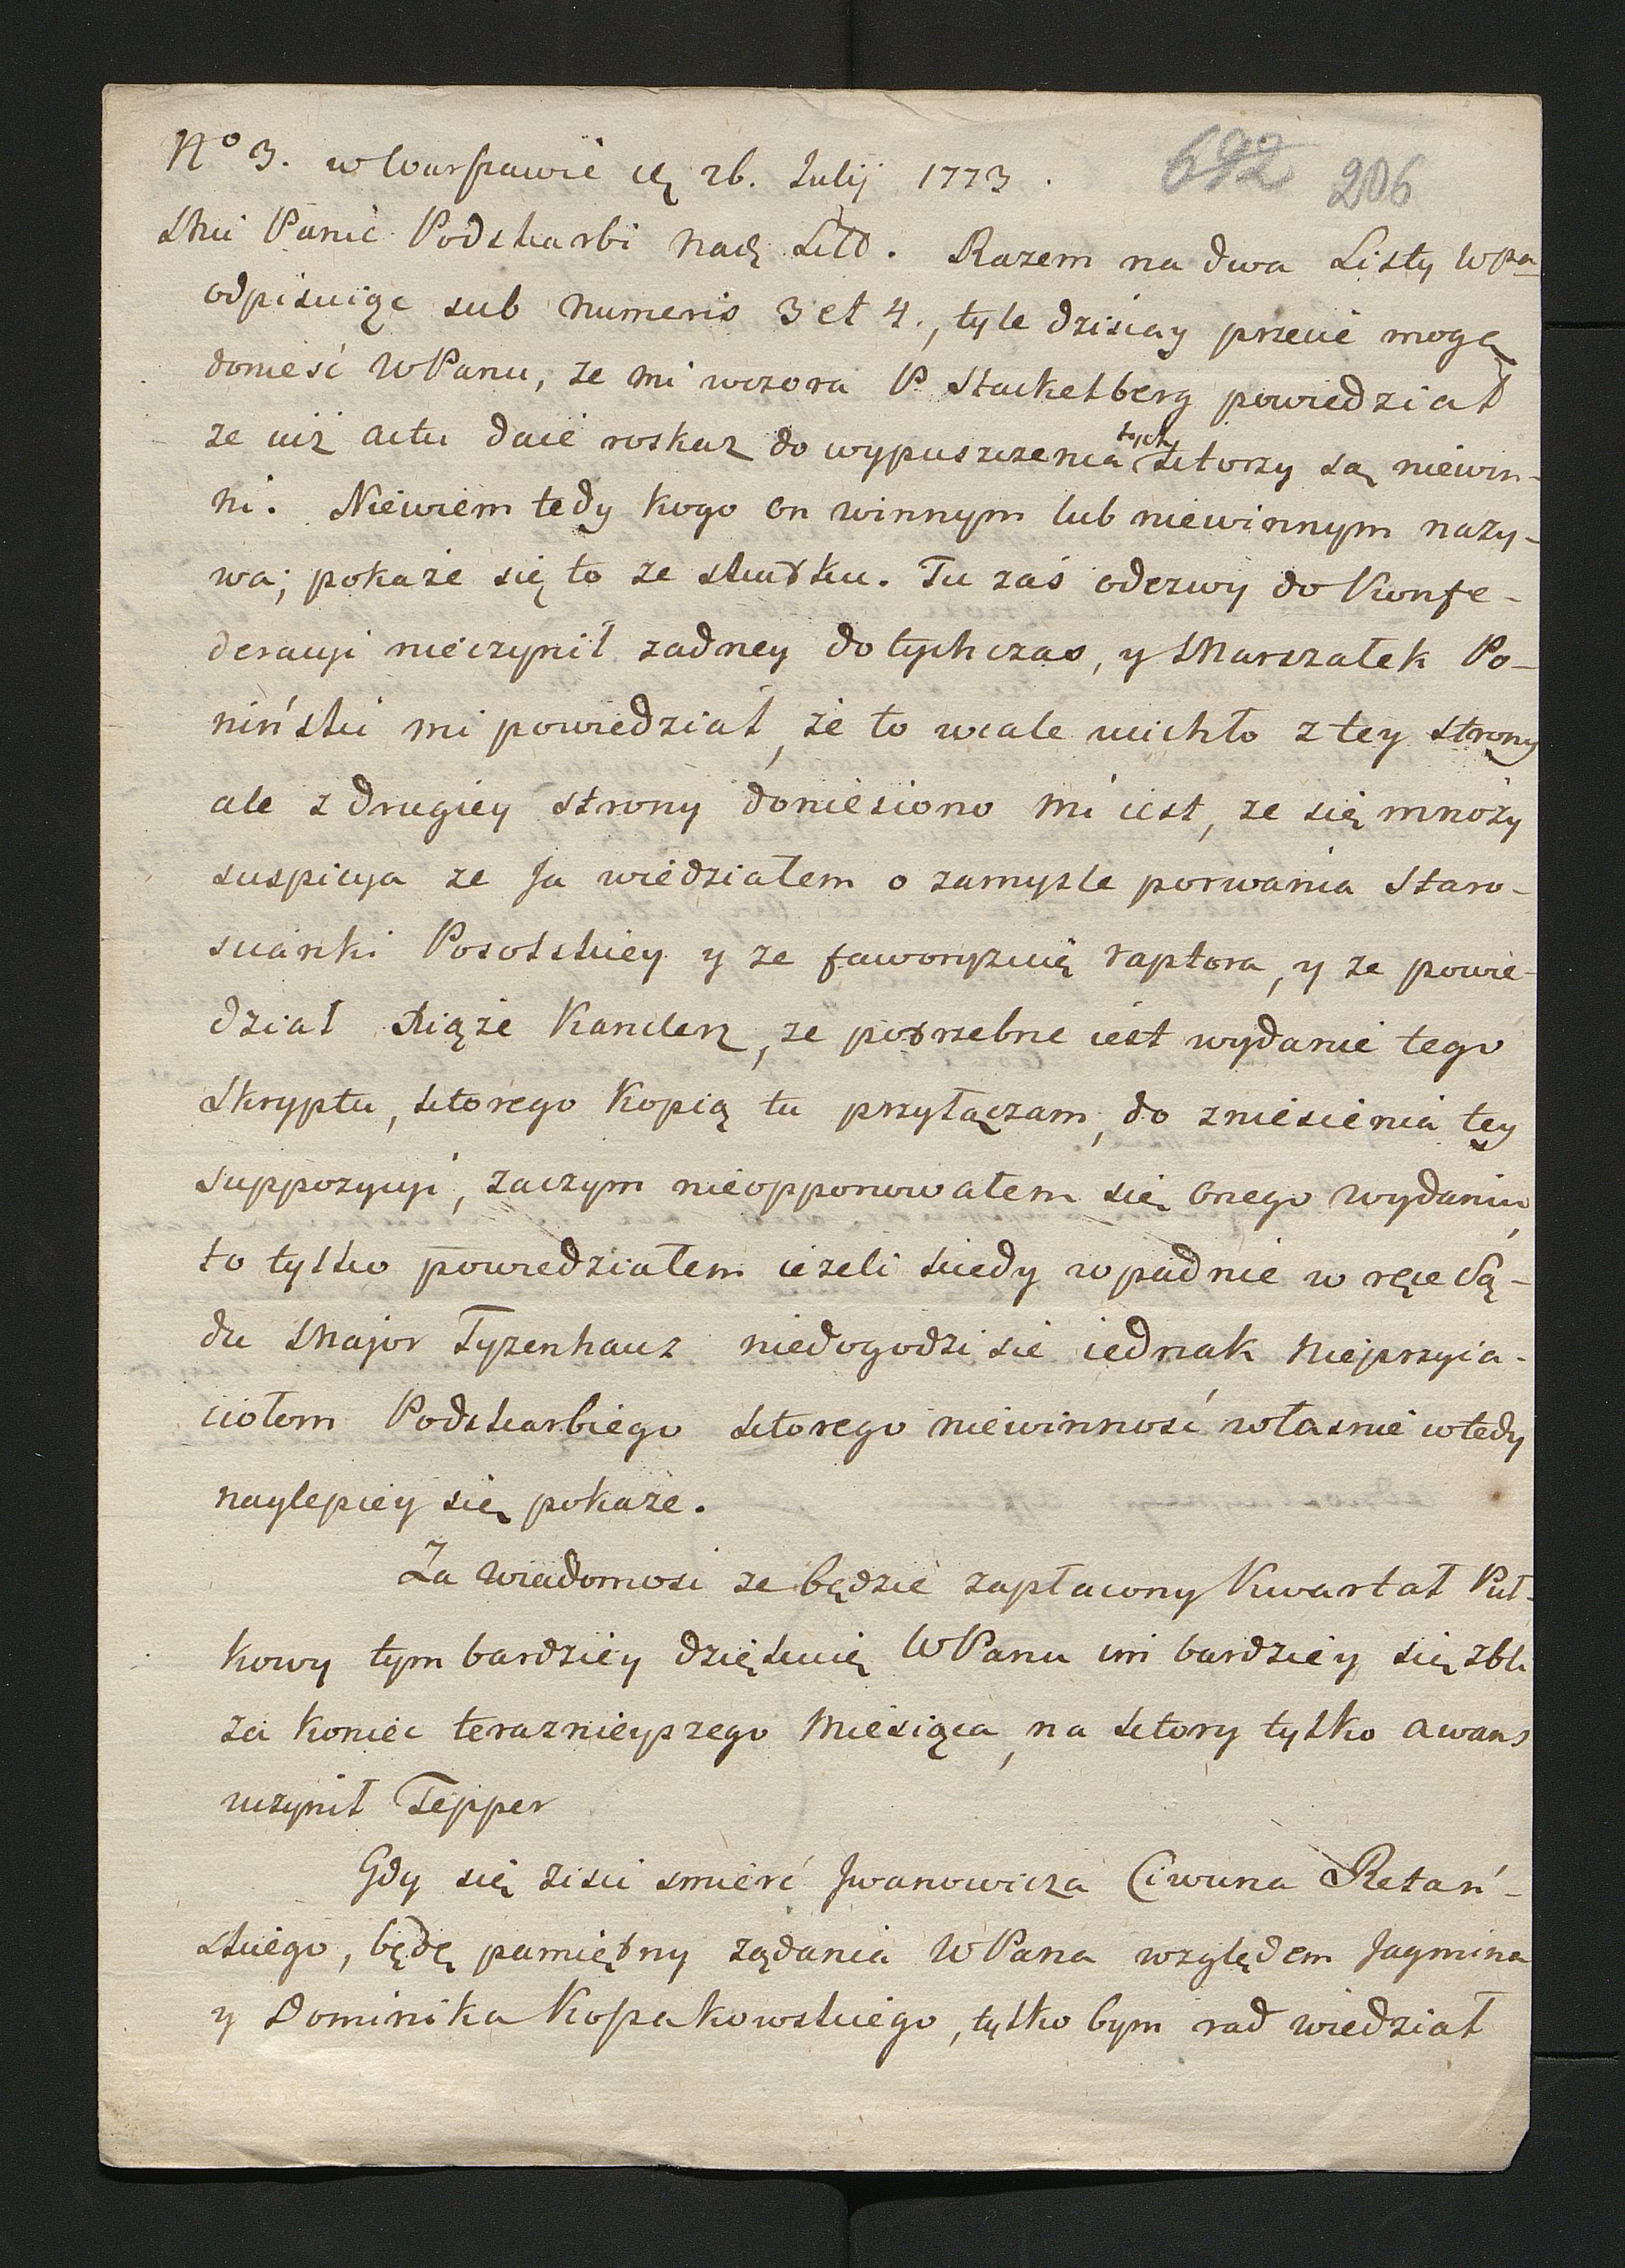 No 3. w Warszawie d. 26. Julij 1773.
692 206
Mci Panie Podskarbi Nad. Litt. Razem na dwa Listy WPa
odpisuiąc sub Numeris 3 et 4., tyle dzisiay przecie mogę
donieść WPanu, ze mi wczora P. Stackelberg powiedział
ze iuż actu daie roskaz do wypuszczenia tych ktorzy są niewin-
ni. Niewiem tedy kogo on winnym lub niewinnym nazy-
wa; pokaże się to ze skutku. Tu zaś odezwy do Konfe-
deracyi nieczynił zadney dotychczas, y Marszałek Po-
niński mi powiedział, że to wcale ucichło z tey strony
ale z drugiey strony doniesiono mi iest, ze się mnoży
suspicya ze Ja wiedziałem o zamysle porwania Staro-
scianki Posolskiey y ze faworyzuię raptora, y ze powie-
dział Xiąże Kanclerz, ze potrzebne iest wydanie tego
Skryptu, ktorego Kopią tu przyłączam, do zniesienia tey
suppozycyi, zaczym nieopponowałem się onego wydaniu,
to tylko powiedziałem ieżeli kiedy wpadnie w ręce Są-
du Major Tyzenhauz niedogodzi sie iednak Nieprzyia-
ciołom Podskarbiego ktorego niewinność własnie wtedy
naylepiey się pokaże.
Za wiadomosc ze będzie zapłacony Kwartał Puł-
kowy tym bardziey dziękuię WPanu im bardziey się zbli
za koniec teraznieyszego Miesiąca, na ktory tylko awans
uczynił Tepper
Gdy się zisci smierć Iwanowicza Ciwuna Retow-
skiego, będę pamiętny żądania WPana względem Jagmina
y Dominika Kossakowskiego, tylko bym rad wiedział